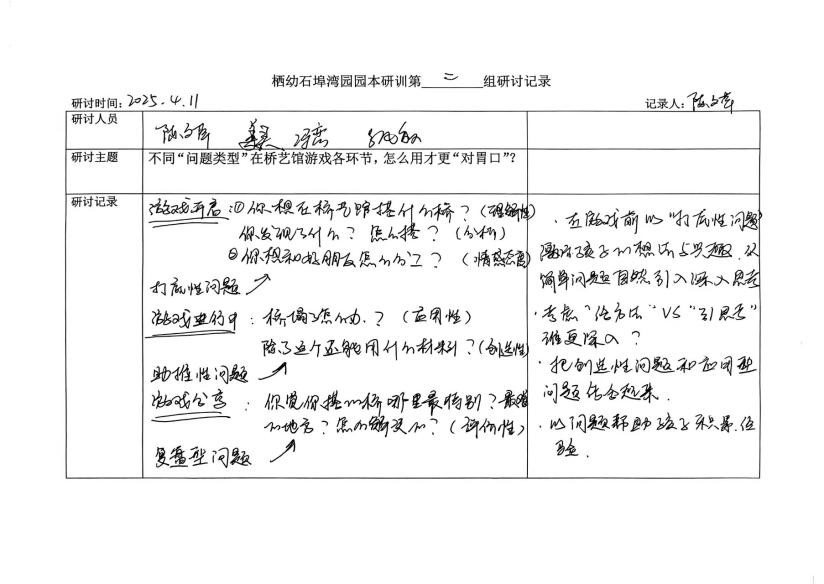 栖幼石埠湾园园本研训第二组研讨记录
研讨时间：2025.4.11 记录人：陈
研讨人员
陈
研讨主题 不同“问题类型”在桥艺馆游戏各环节，怎么用才更“对胃口”？
研讨记录
游戏开启：①你想在桥艺馆搭什么桥？（理解性）
你发现了什么？怎么搭？（分析）
②你想和好朋友怎么分工？（情感态度）
打底性问题
游戏进行中：桥塌了怎么办？（应用性）
除了这个还能用什么材料？（创造性）
助推性问题
游戏分享：你觉你搭的桥哪里最特别？最难
的地方？怎么解决的？（评价性）
复盘型问题
·在游戏前以“打底性问题”
激活孩子的想法与兴趣，从
简单问题自然引入深入思考
·考虑“给方法”VS“引思考”
谁更深入？
·把创造性问题和应用型
问题结合起来.
·以问题帮助孩子积累经
验.